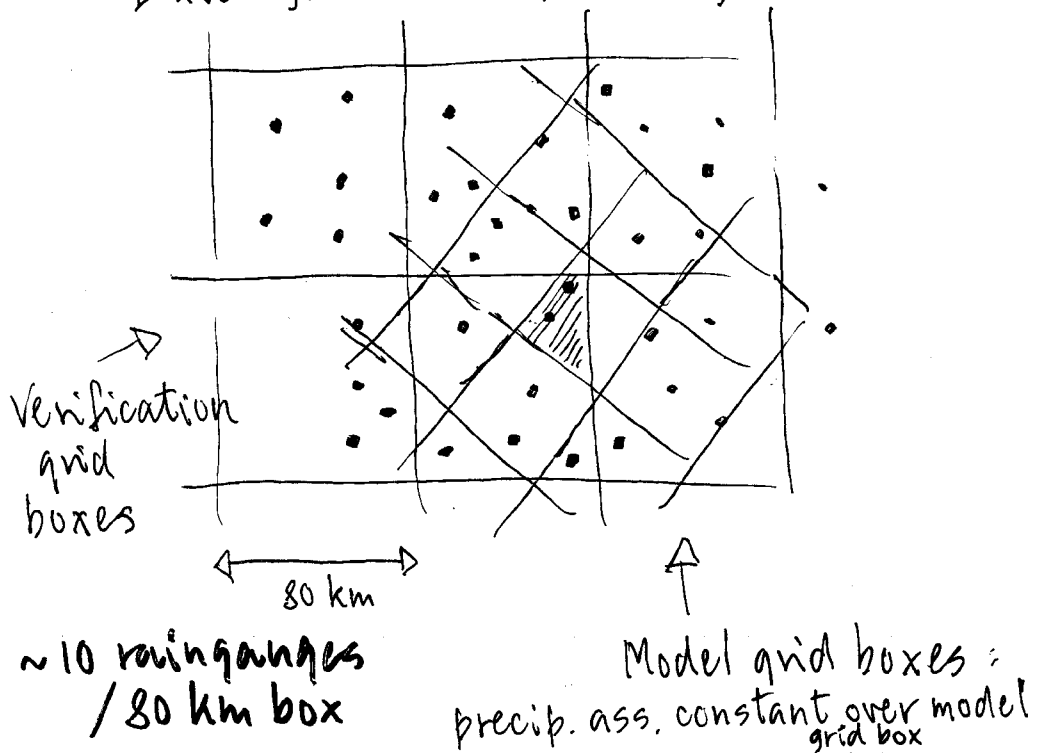 Verification
grid
boxes
80 km
~ 10 raingauges
/ 80 km box
Model grid boxes :
precip. ass. constant over model
grid box